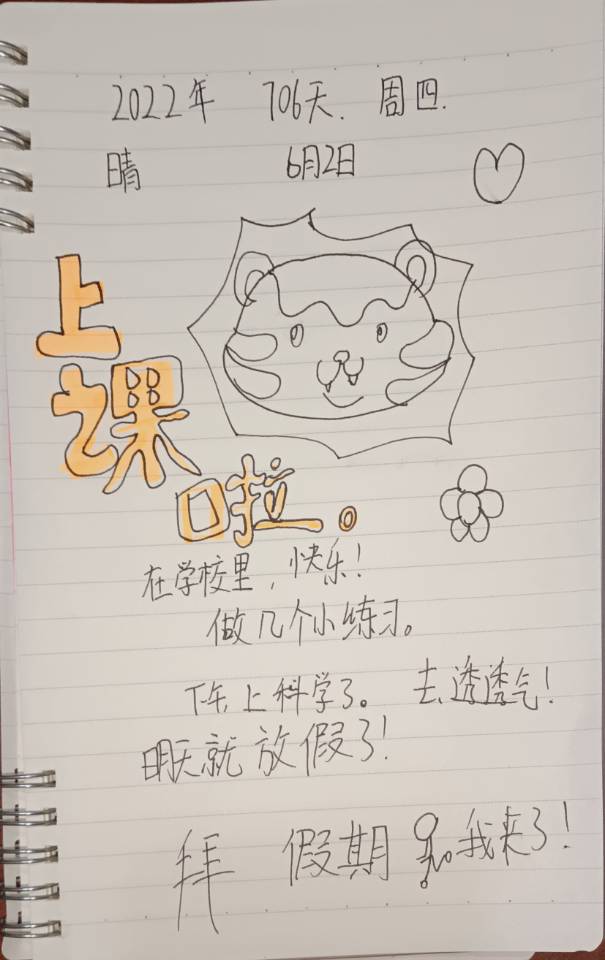 2022年 706天. 周四.
晴 6月2日
上
课
啦。
在学校里，快乐！
做几个小练习。
下午上科学了。去透透气！
明天就放假了！
拜 假期 我来了！